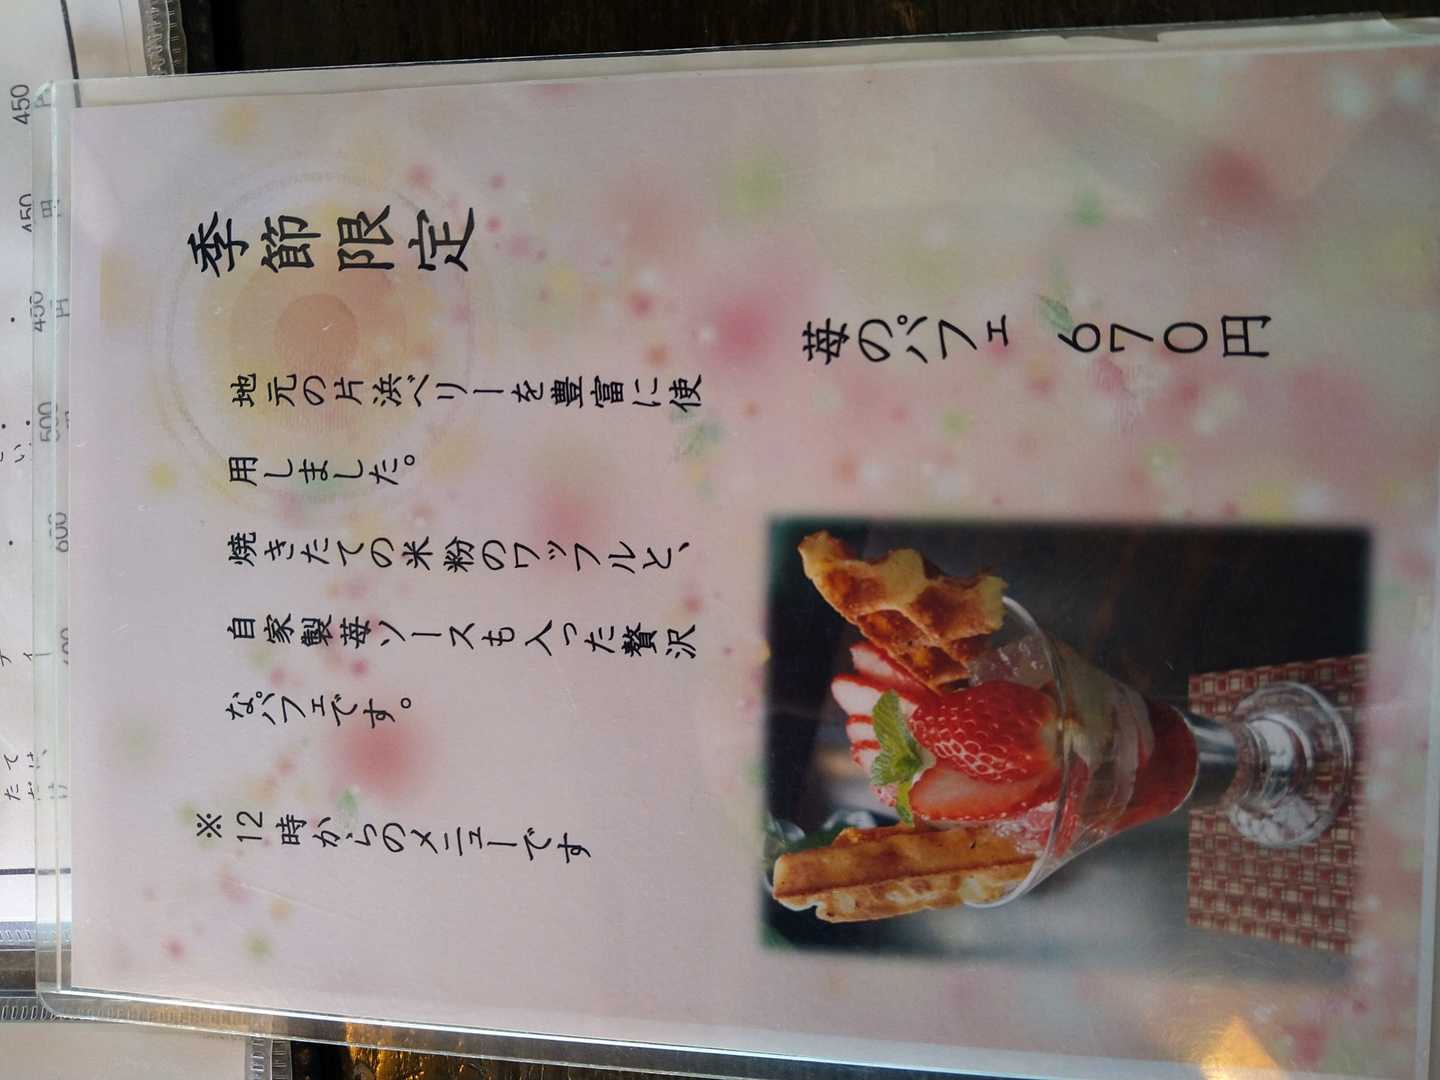 季節限定
地元の片浜ベリーを豊富に使
用しました。
焼きたての米粉のワッフルと、
自家製苺ソースも入った贅沢
なパフェです。
※12時からのメニューです
苺のパフェ 670円
450
450円
450円
500
600